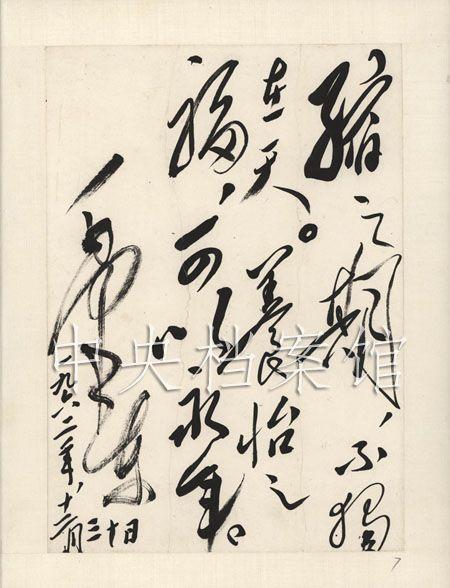 縮之期,不獨
在天。養怡之
福,可以永年。
毛澤東
一九六二年,十二月
三十日
中央档案馆
7